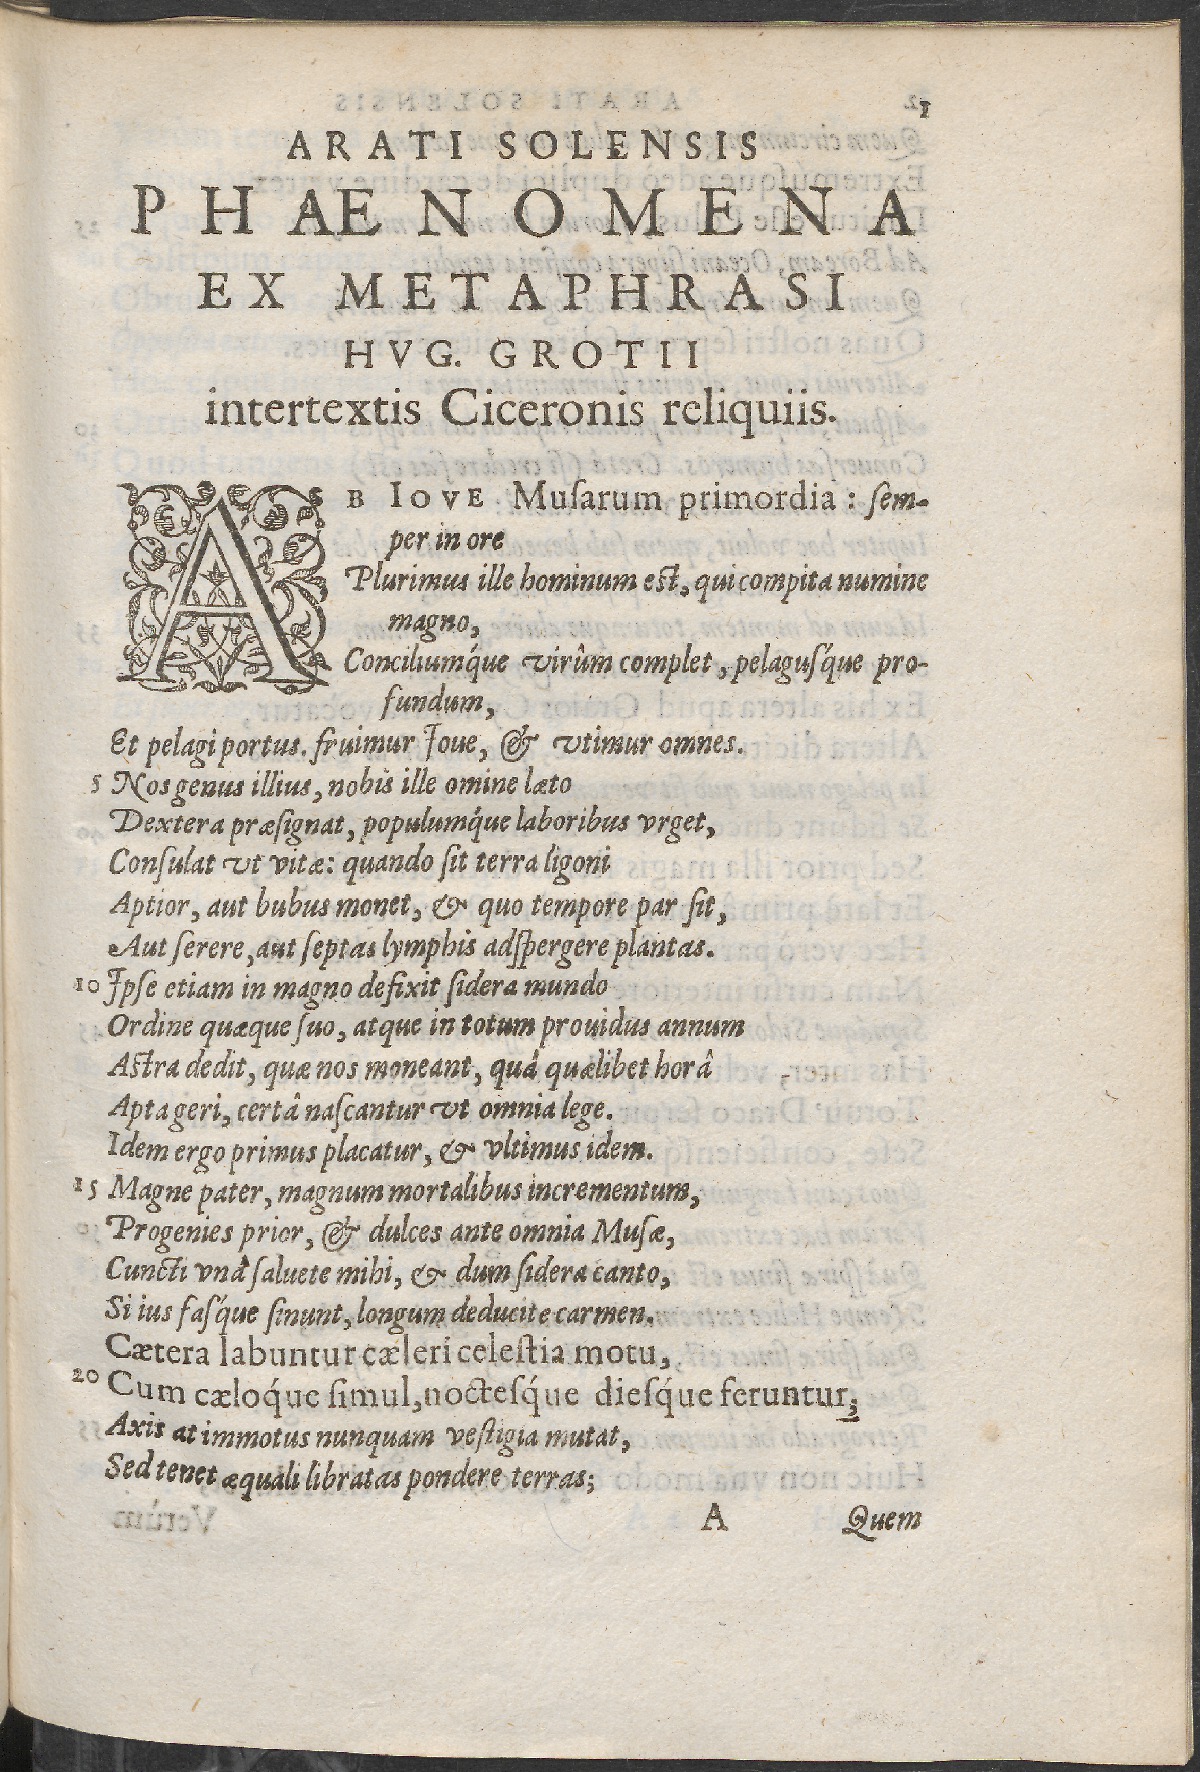 1
ARATI SOLENSIS
PHAENOMENA
EX METAPHRASI
HVG. GROTII
intertextis Ciceronis reliquiis.
AB IOVE Muſarum primordia: ſem-
per in ore
Plurimus ille hominum eſt, qui compita numine
magno,
Conciliumq́ue virûm complet, pelaguſq́ue pro-
fundum,
Et pelagi portus. fruimur Ioue, & vtimur omnes.
5 Nos genus illius, nobis ille omine læto
Dextera præſignat, populumq́ue laboribus vrget,
Conſulat vt vitæ: quando ſit terra ligoni
Aptior, aut bubus monet, & quo tempore par ſit,
Aut ſerere, aut ſeptas lymphis adſpergere plantas.
10 Ipſe etiam in magno defixit ſidera mundo
Ordine quæque ſuo, atque in totum prouidus annum
Aſtra dedit, quæ nos moneant, quâ quælibet horâ
Apta geri, certâ naſcantur vt omnia lege.
Idem ergo primus placatur, & vltimus idem.
15 Magne pater, magnum mortalibus incrementum,
Progenies prior, & dulces ante omnia Muſæ,
Cuncti vnâ ſaluete mihi, & dum ſidera canto,
Si ius faſq́ue ſinunt, longum deducite carmen.
Cætera labuntur cæleri celeſtia motu,
20 Cum cæloq́ue ſimul, nocteſq́ue dieſq́ue feruntur;
Axis at immotus nunquam veſtigia mutat,
Sed tenet æquali libratas pondere terras;
A Quem